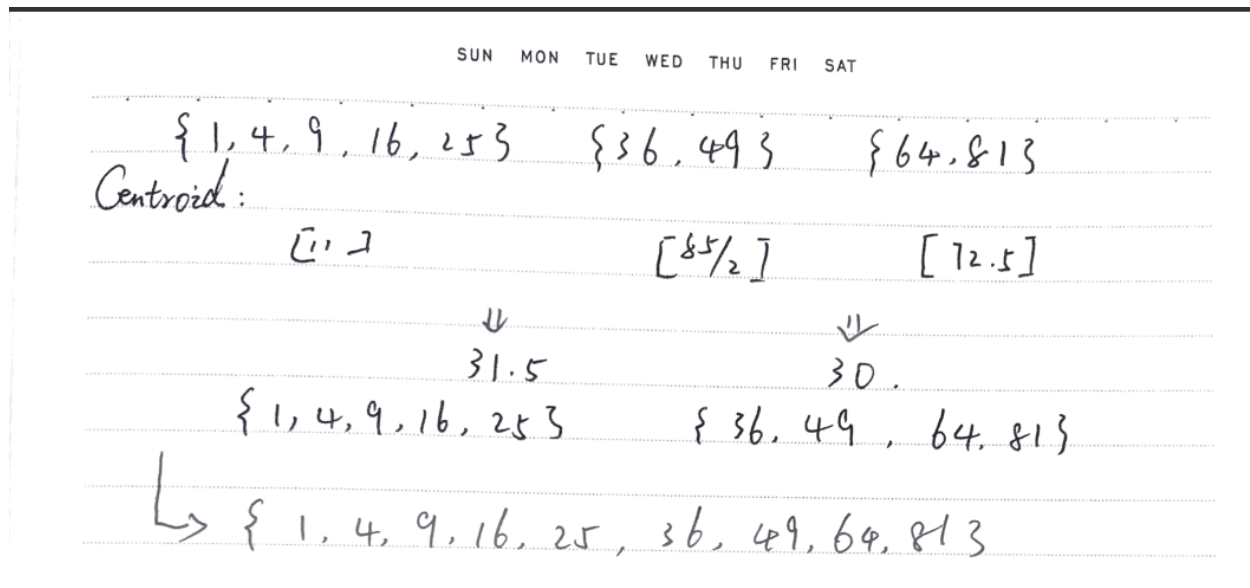 SUN MON TUE WED THU FRI SAT
{1, 4, 9, 16, 25} {36, 49} {64, 81}
Centroid:
[11] [85/2] [72.5]
⇓ ⇓
31.5 30.
{1, 4, 9, 16, 25} {36, 49, 64, 81}
↳ {1, 4, 9, 16, 25, 36, 49, 64, 81}